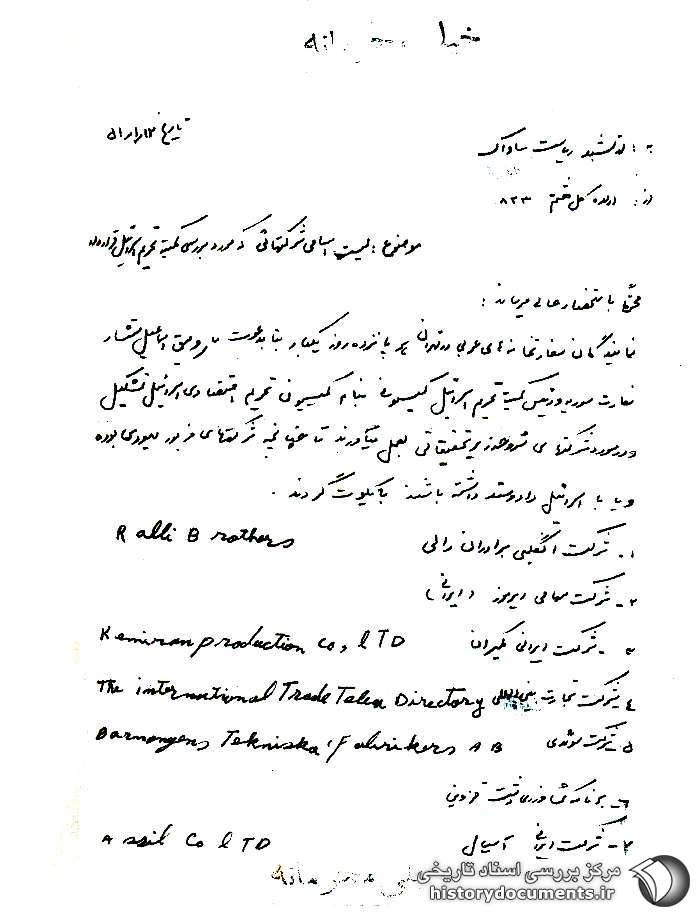 خیلی محرمانه
به: تیمسار ریاست ساواک
تاریخ
از: اداره کل هشتم ۸۲۳
موضوع: لیست اسامی شرکتهائی که مورد بررسی کمیته تحریم اسرائیل قرار دارد
محترماً باستحضار عالی میرساند:
نمایندگان سفارتخانه‌های عربی در تهران هر پانزده روز یکبار بنا بدعوت اسماعیل مستشار
سفارت سوریه و رئیس کمیته تحریم اسرائیل کمیسیونی بنام کمیسیون تحریم اقتصادی اسرائیل تشکیل
و در مورد شرکتهای مشروحه زیر تحقیقاتی بعمل میآورند تا چنانچه شرکتهای مزبور یهودی بوده
و یا با اسرائیل دادوستد داشته باشند بایکوت گردند.
۱- شرکت انگلیسی برادران رالی Ralli Brothers
۲- شرکت سهامی (ایرانی)
۳- شرکت ایرانی کمیران Kemiran production Co, lTD
٤- شرکت تجارت بین‌المللی The international Trade Telex Directory
۵- شرکت سوئدی Barnangens Tekniska Fabrikers AB
۶- برنامه کشاورزی دشت قزوین
۷- شرکت ایرانی آسیال Assil Co lTD
خیلی محرمانه
مرکز بررسی اسناد تاریخی
historydocuments.ir